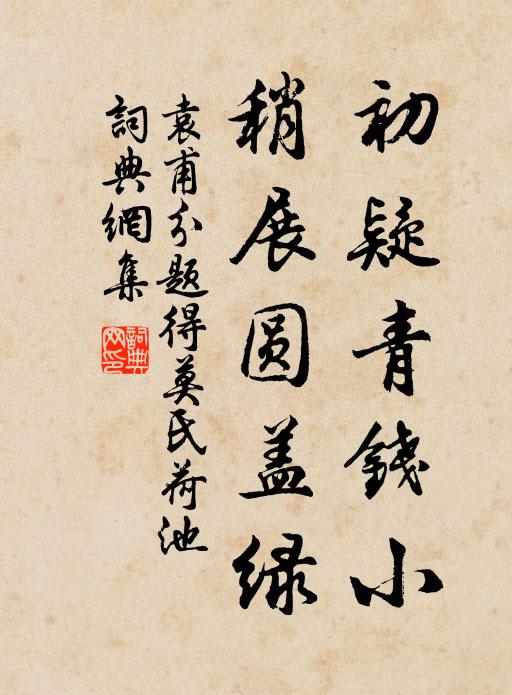 初疑青錢小
稍展圆盖绿
袁甫分题得莫氏荷池
詞典網集
詞典网印